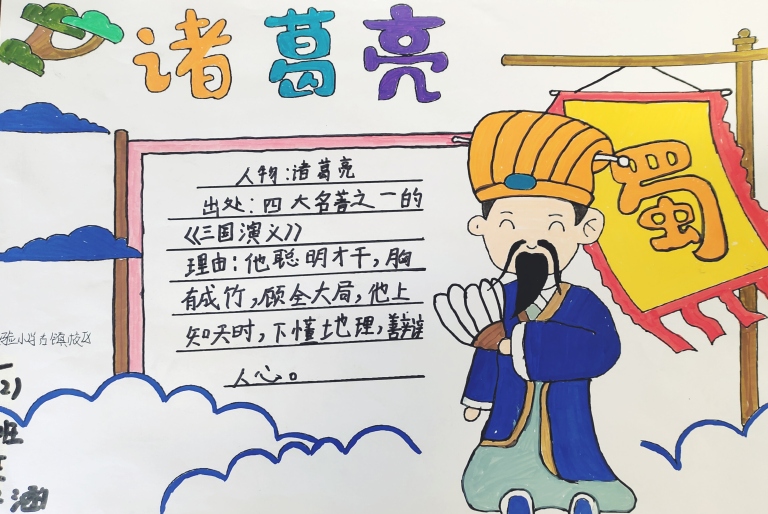 诸葛亮
蜀
人物:诸葛亮
出处:四大名著之一的
《三国演义》
理由:他聪明才干,胸
有成竹,顾全大局,他上
知天时,下懂地理,善辩
人心。
2)
班
涵